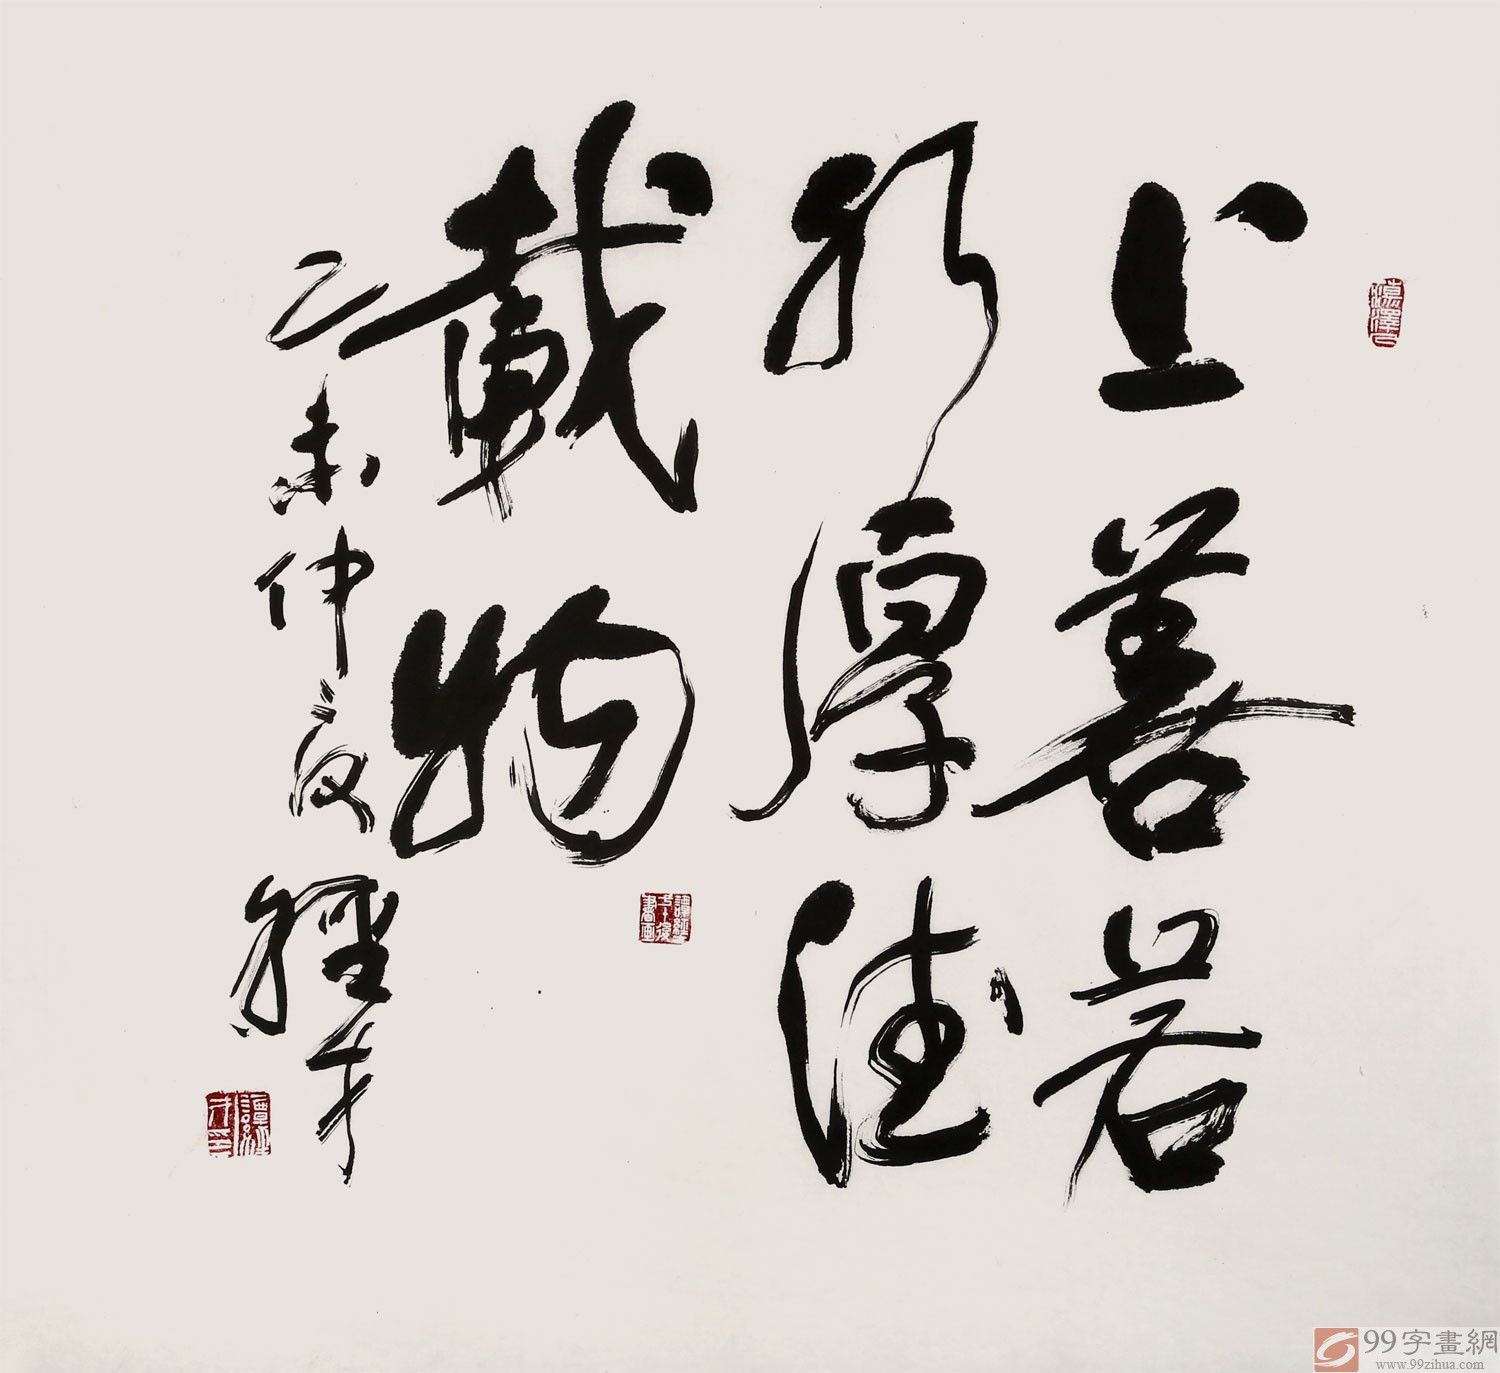 上善若
水厚德
載物
乙未仲夏經才
99字畫網
www.99zihua.com